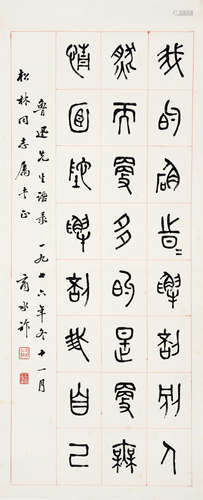 我的确旹=解剖别人
然而更多的是更無
情面地解剖我自己
魯迅先生語录 一九七六年冬十一月
松林同志属书正 商承祚